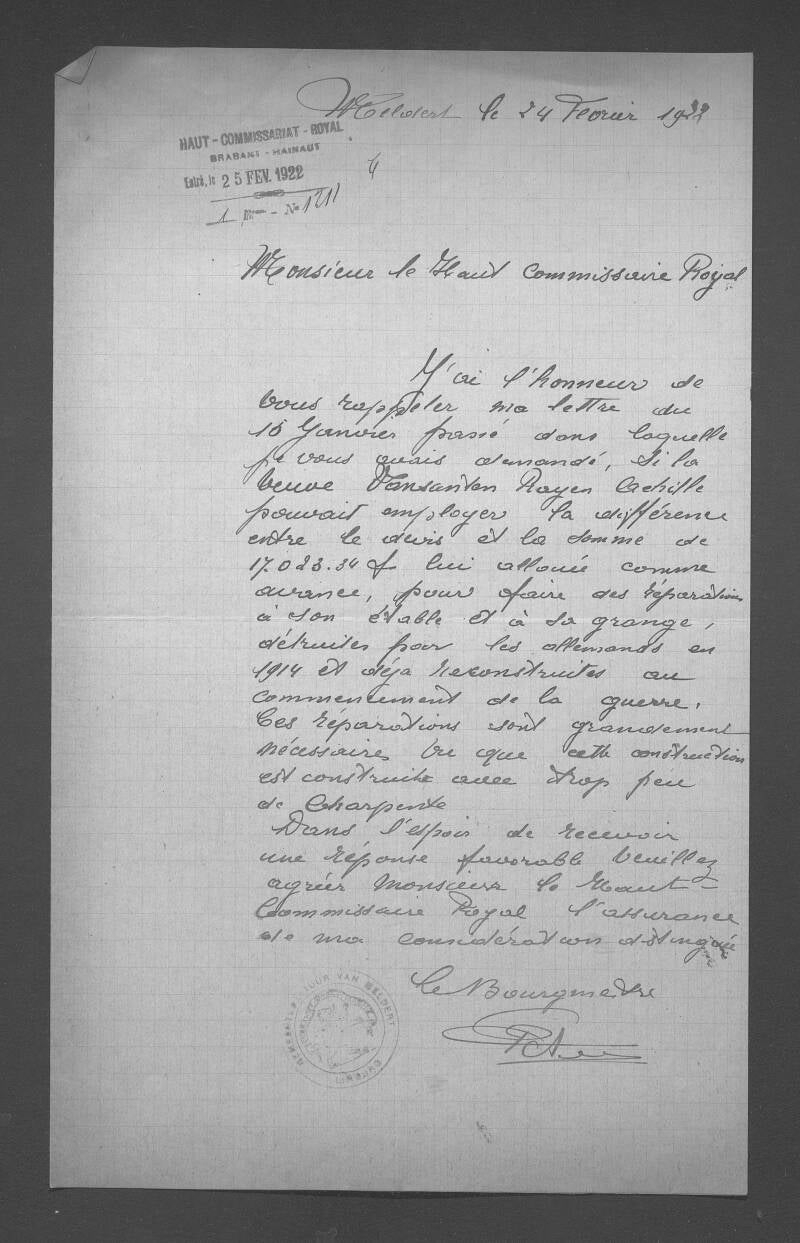 Meldert le 24 Fevrier 1922
HAUT-COMMISSARIAT-ROYAL
BRABANT-HAINAUT
Entré, le 25 FEV. 1922
Monsieur le Haut Commissaire Royal
J'ai l'honneur de
vous rappeler ma lettre du
16 Janvier passé dans laquelle
je vous avais demandé, si la
Veuve Vansanten Royen Cachille
pouvait employer la différence
entre le devis et la somme de
17.023.34 f lui allouée comme
avance, pour faire des réparations
à son étable et à sa grange,
détruites par les allemands en
1914 et déja reconstruites au
commencement de la guerre.
Ces réparations sont grandement
nécessaires vu que cette construction
est construite avec trop peu
de Charpente
Dans l'espoir de recevoir
une réponse favorable veuillez
agréer Monsieur le Haut-
Commissaire Royal l'assurance
de ma considération distinguée
Le Bourgmestre
GEMEENTEBESTUUR VAN MELDERT
LIMBURG